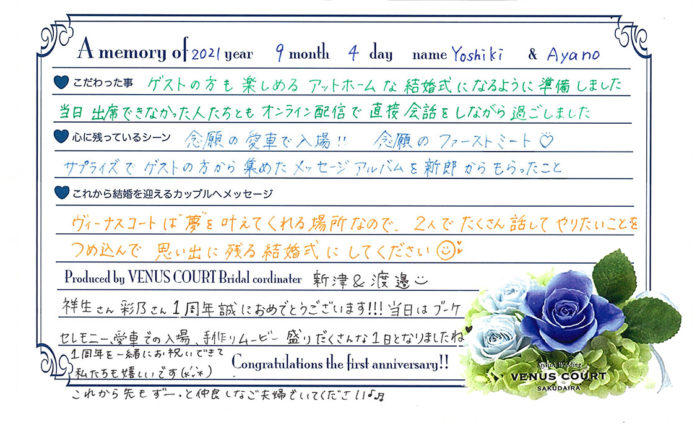 A memory of 2021 year 9 month 4 day name Yoshiki & Ayano
こだわった事 ゲストの方も楽しめるアットホームな結婚式になるように準備しました
当日出席できなかった人たちともオンライン配信で直接会話をしながら過ごしました
心に残っているシーン 念願の愛車で入場!! 念願のファーストミート♡
サプライズでゲストの方から集めたメッセージアルバムを新郎からもらったこと
これから結婚を迎えるカップルへメッセージ
ヴィーナスコートは“夢”を叶えてくれる場所なので、2人でたくさん話してやりたいことを
つめ込んで思い出に残る結婚式にしてください
Produced by VENUS COURT Bridal cordinater 新津&渡邉
祥生さん彩乃さん1周年誠におめでとうございます!!!当日はブーケ
セレモニー、愛車での入場、手作りムービー盛りだくさんな1日となりましたね
1周年を一緒にお祝いできて
私たちも嬉しいです
Congratulations the first anniversary!!
これから先もずーっと仲良しなご夫婦でいてください♪♫
VENUS COURT
SAKUDAIRA